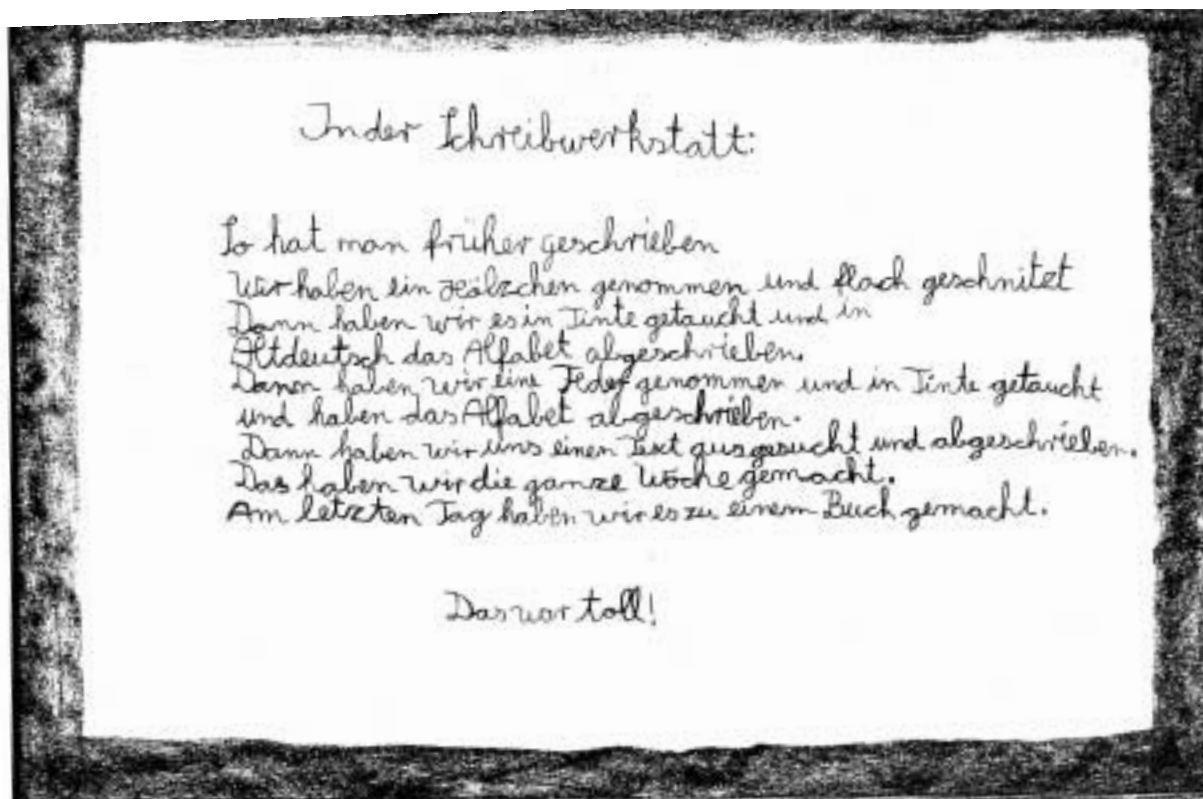 In der Schreibwerkstatt:
So hat man früher geschrieben
Wir haben ein Hölzchen genommen und flach geschnitzt
Dann haben wir es in Tinte getaucht und in
Altdeutsch das Alfabet abgeschrieben.
Dann haben wir eine Feder genommen und in Tinte getaucht
und haben das Alfabet abgeschrieben.
Dann haben wir uns einen Text ausgesucht und abgeschrieben.
Das haben wir die ganze Woche gemacht.
Am letzten Tag haben wir es zu einem Buch gemacht.
Das war toll!